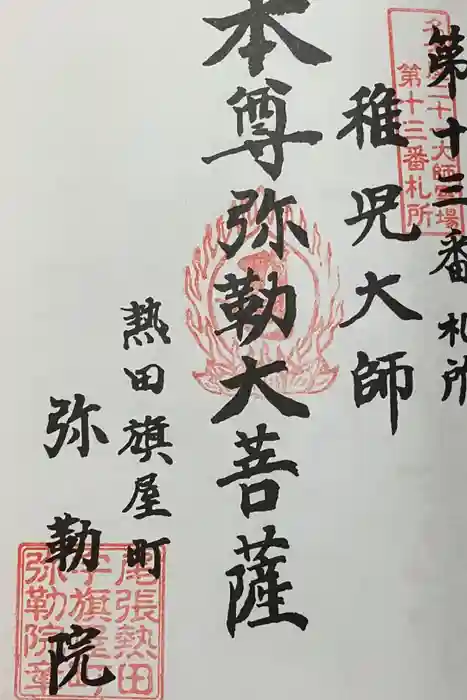 第十三番札所
稚児大師
本尊弥勒大菩薩
熱田旗屋町
弥勒院
第十三番札所
尾張熱田
字旗屋町
弥勒院章